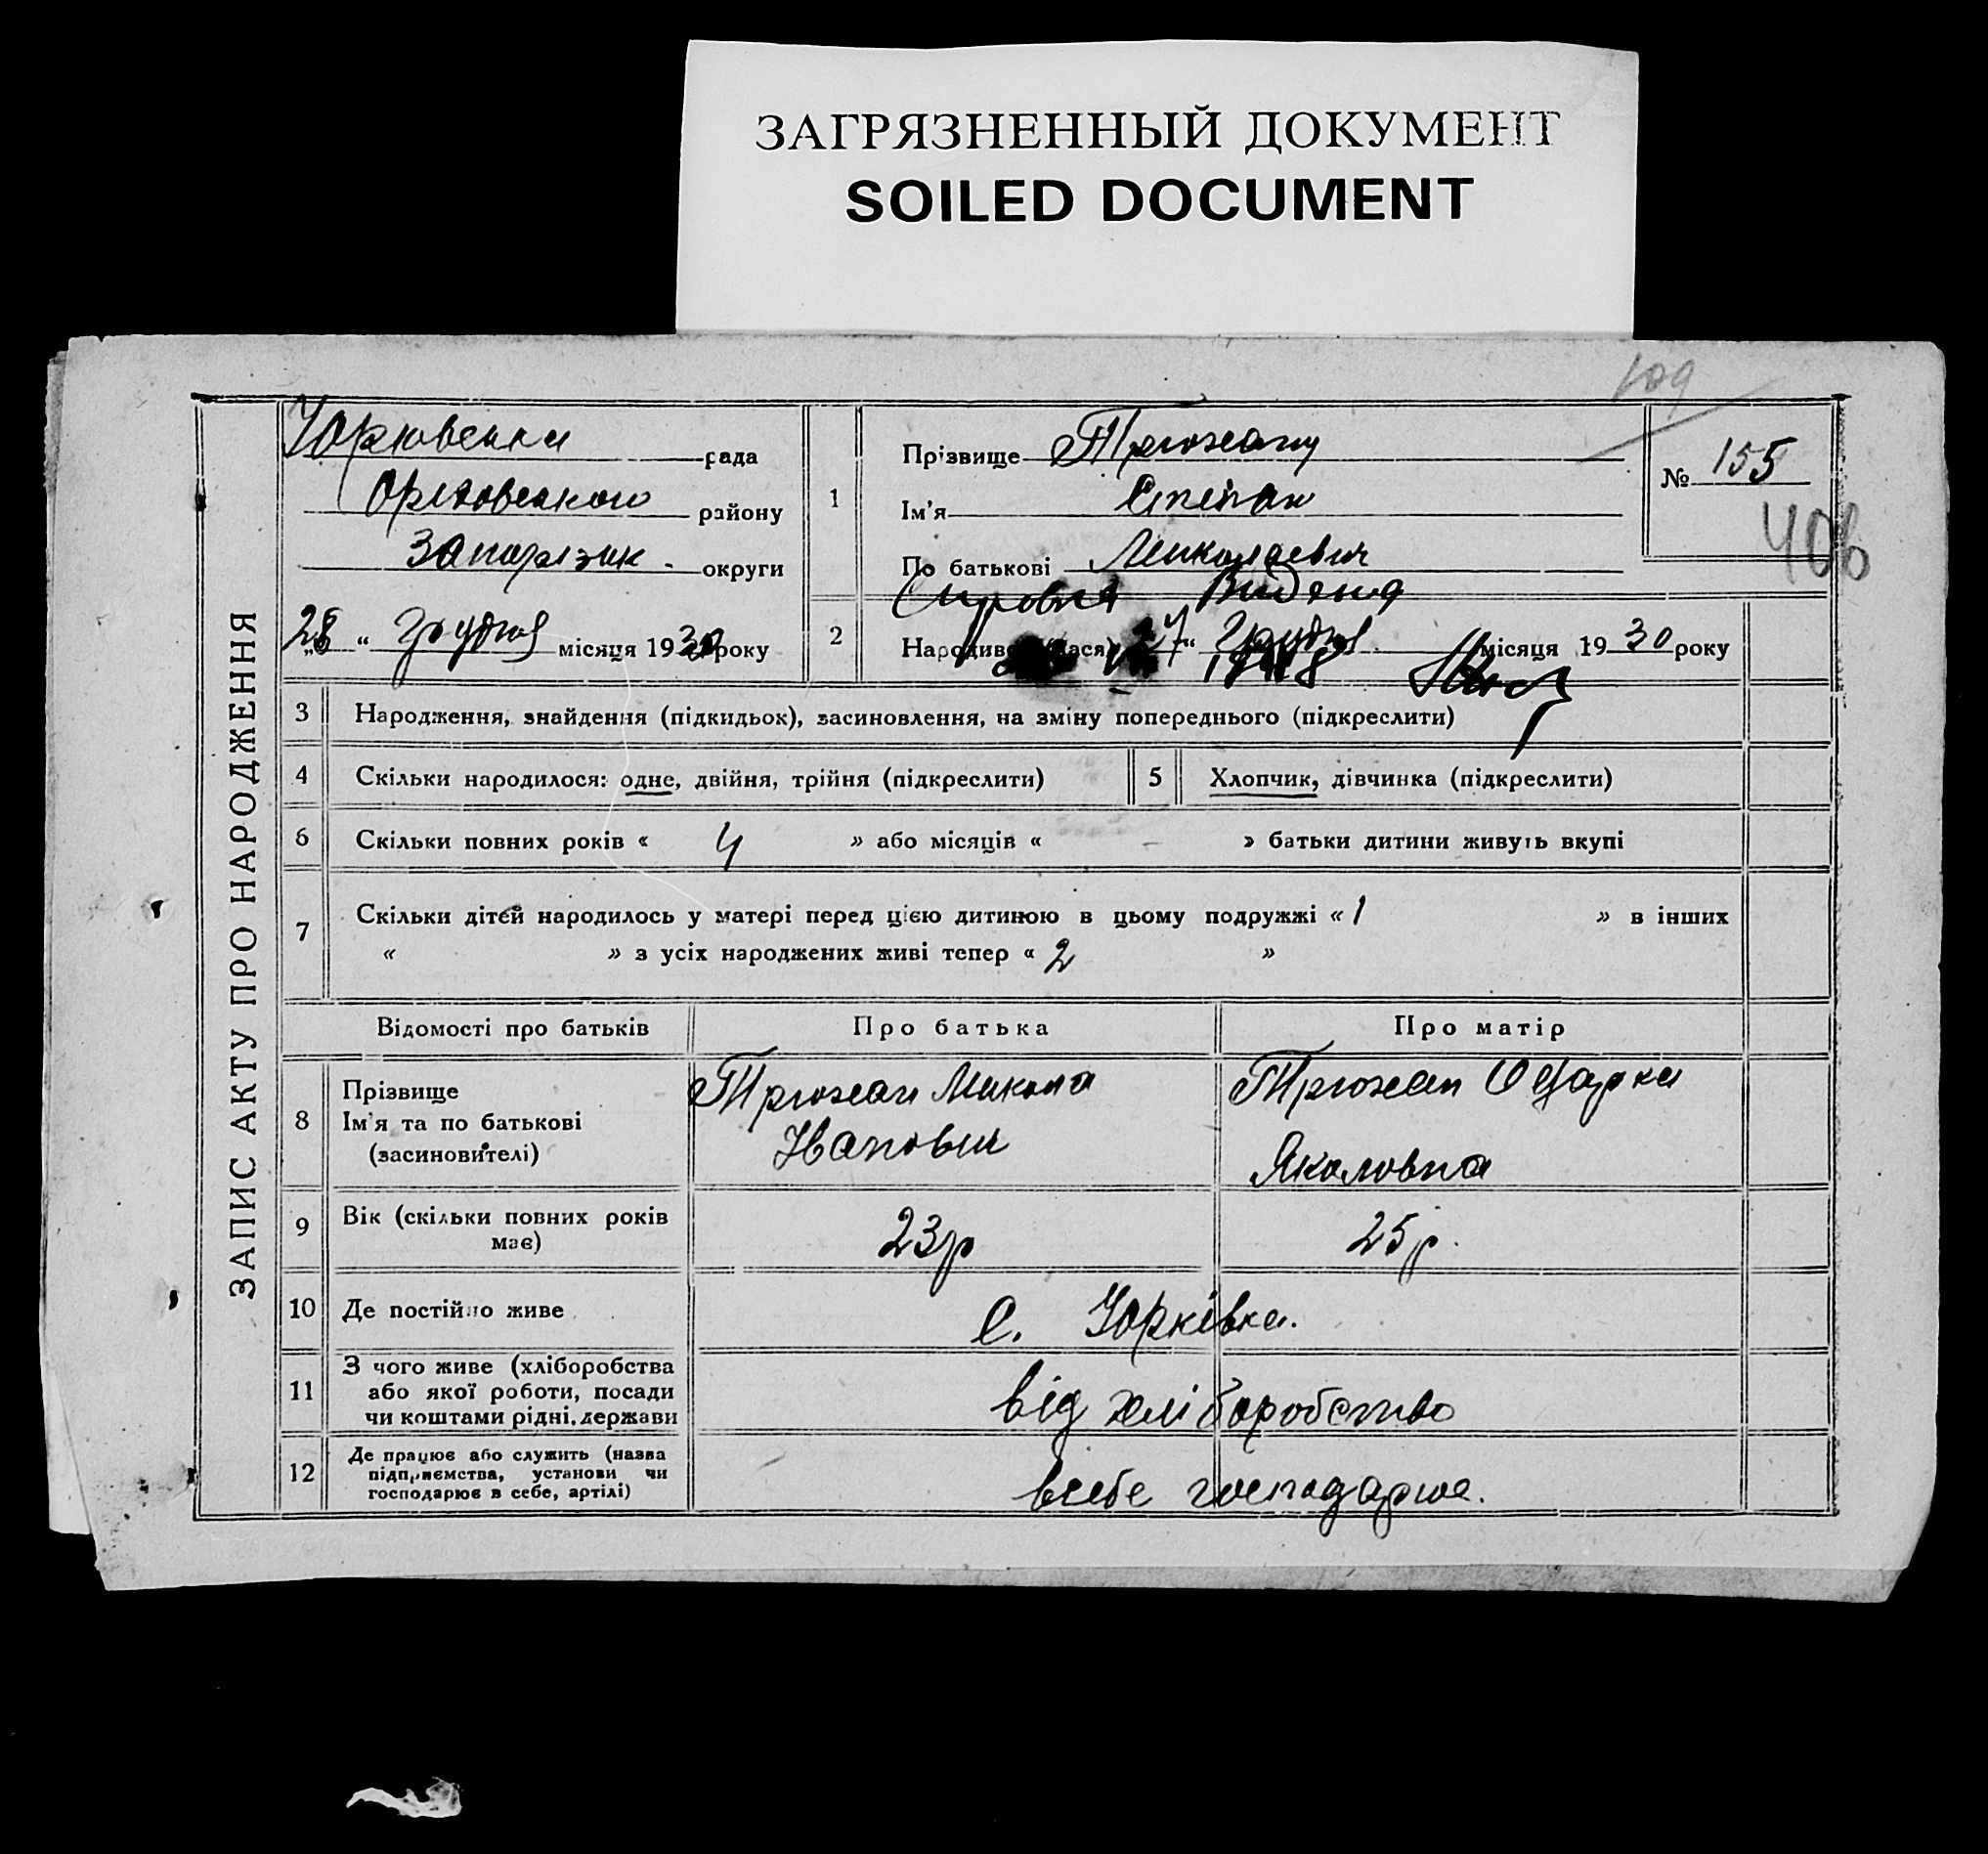 ЗАГРЯЗНЕННЫЙ ДОКУМЕНТ
SOILED DOCUMENT
109
ЗАПИС АКТУ ПРО НАРОДЖЕННЯ
рада
району
округи
28 " грудня місяця 1930 року
1
Прізвище Трюхан
Ім'я Степан
По батькові Миколаевич
№ 155
406
Видена
2
27 " грудня місяця 1930 року
3 Народження, знайдення (підкидьок), засиновлення, на зміну попереднього (підкреслити)
4 Скільки народилося: одне, двійня, трійня (підкреслити)
5 Хлопчик, дівчинка (підкреслити)
6 Скільки повних років « 4 » або місяців « – » батьки дитини живуть вкупі
7 Скільки дітей народилось у матері перед цією дитиною в цьому подружжі « 1 » в інших
« » з усіх народжених живі тепер « 2 »
Відомості про батьків
Про батька
Про матір
8 Прізвище
Ім'я та по батькові
(засиновителі)
Трюхан Микола
Іванович
Трюхан Одарка
Яковловна
9 Вік (скільки повних років
має)
23р
25р.
10 Де постійно живе
с. Юрківка.
11 З чого живе (хліборобства
або якої роботи, посади
чи коштами рідні, держави
від хліборобство
12 Де працює або служить (назва
підприємства, установи чи
господарює в себе, артілі)
всебе господарює.